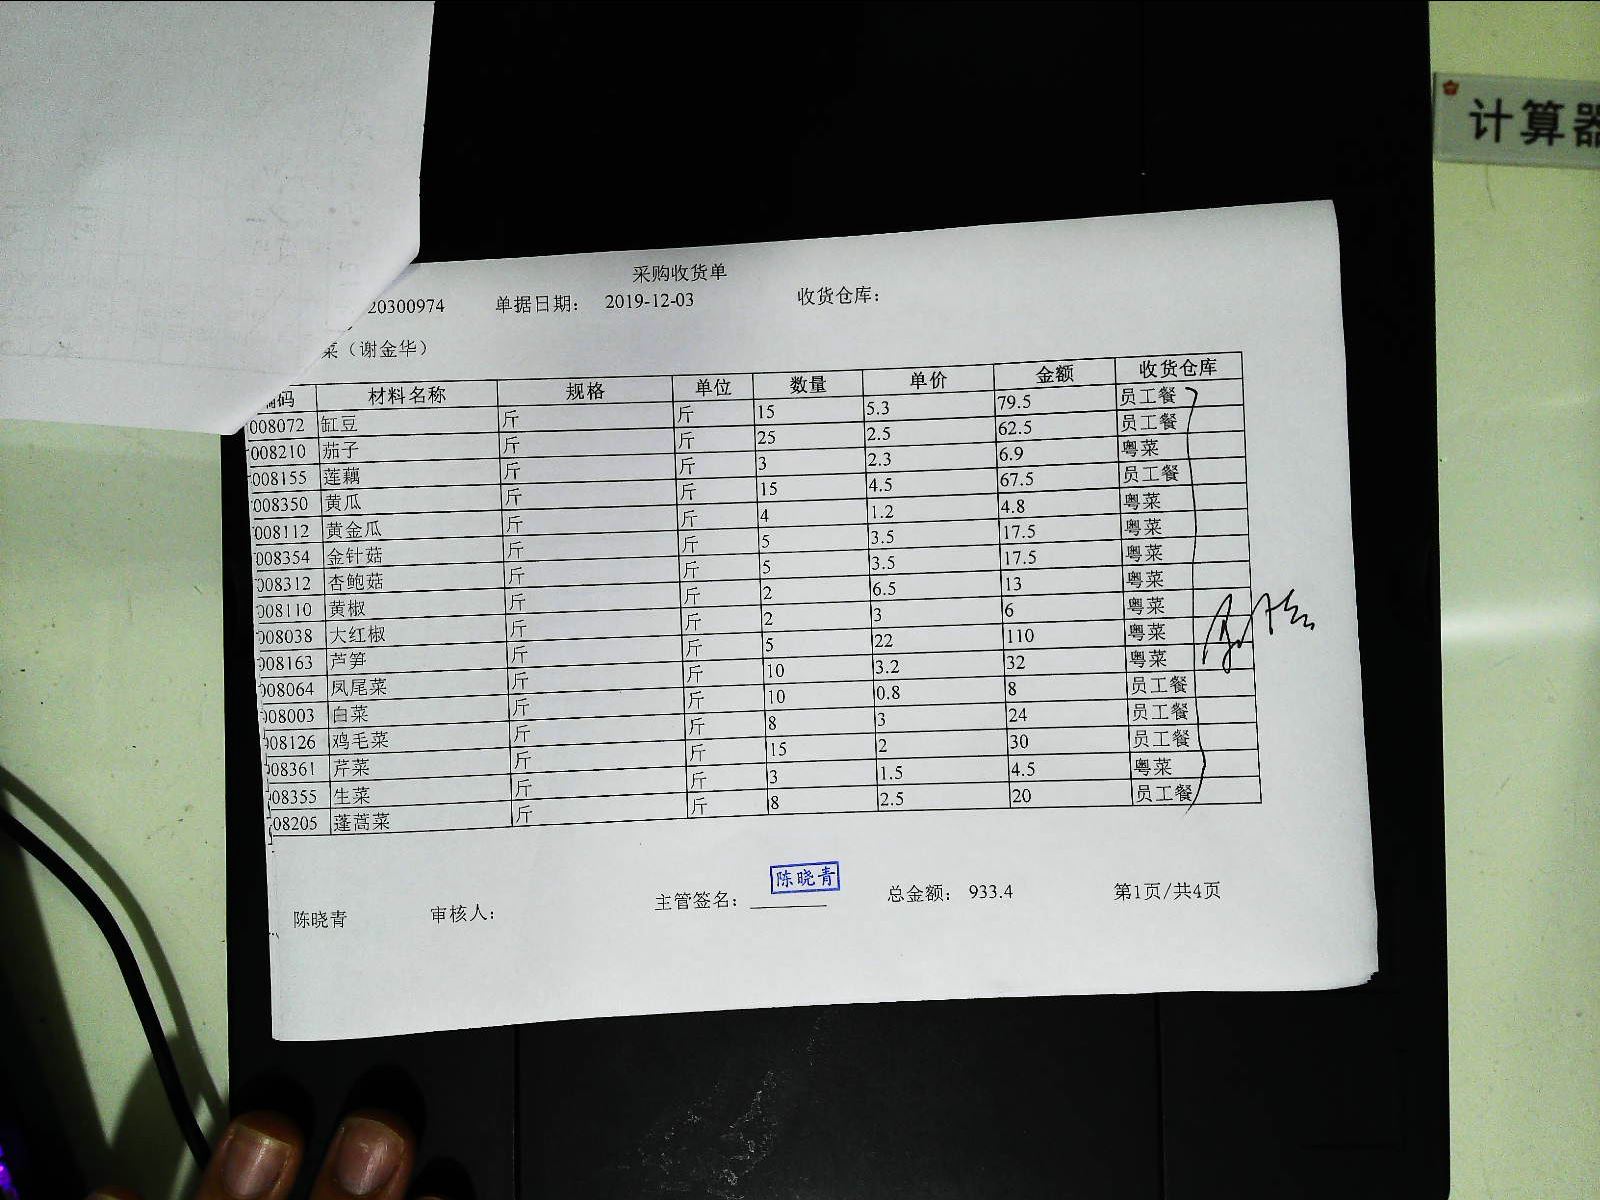 计算器
采购收货单
20300974 单据日期： 2019-12-03 收货仓库：
菜（谢金华）
编码 材料名称 规格 单位 数量 单价 金额 收货仓库
008072 缸豆 斤 斤 15 5.3 79.5 员工餐
008210 茄子 斤 斤 25 2.5 62.5 员工餐
008155 莲藕 斤 斤 3 2.3 6.9 粤菜
008350 黄瓜 斤 斤 15 4.5 67.5 员工餐
008112 黄金瓜 斤 斤 4 1.2 4.8 粤菜
008354 金针菇 斤 斤 5 3.5 17.5 粤菜
008312 杏鲍菇 斤 斤 5 3.5 17.5 粤菜
008110 黄椒 斤 斤 2 6.5 13 粤菜
008038 大红椒 斤 斤 2 3 6 粤菜
008163 芦笋 斤 斤 5 22 110 粤菜
008064 凤尾菜 斤 斤 10 3.2 32 粤菜
008003 白菜 斤 斤 10 0.8 8 员工餐
008126 鸡毛菜 斤 斤 8 3 24 员工餐
08361 芹菜 斤 斤 15 2 30 员工餐
08355 生菜 斤 斤 3 1.5 4.5 粤菜
08205 蓬蒿菜 斤 斤 8 2.5 20 员工餐
陈晓青 审核人： 主管签名： 陈晓青 总金额： 933.4 第1页/共4页